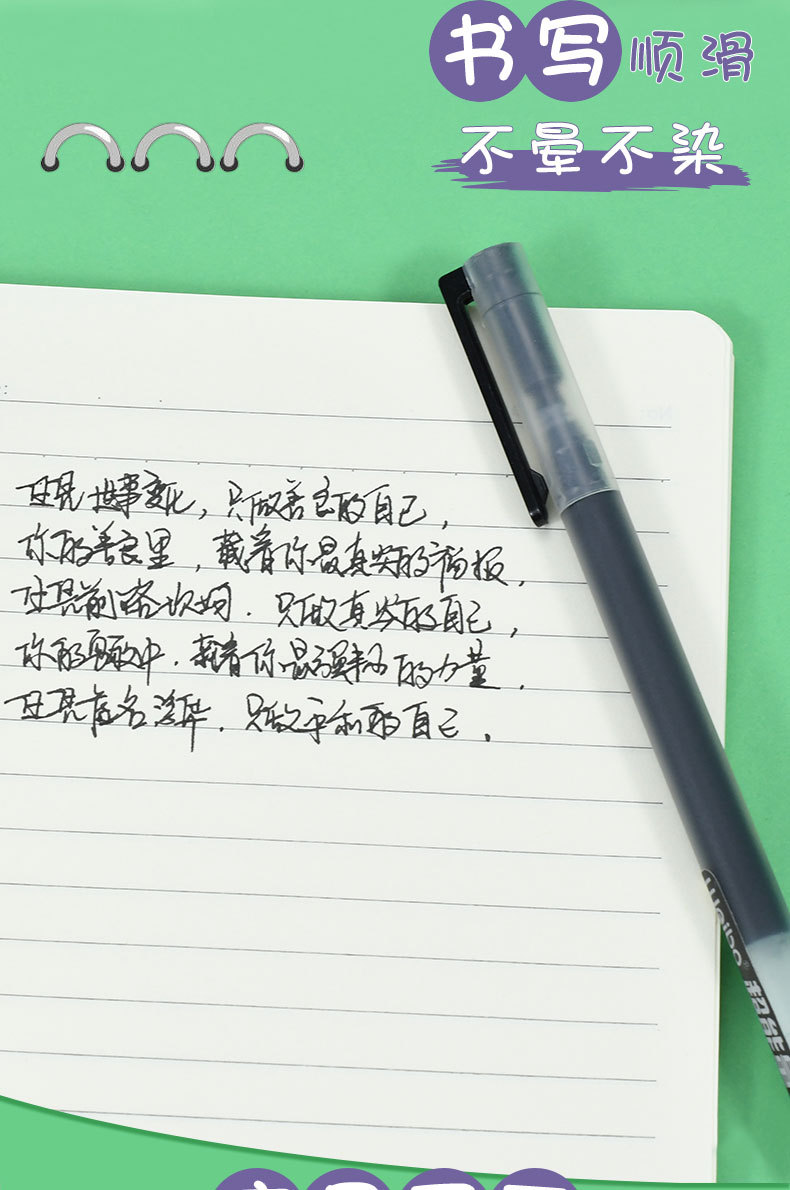 书写顺滑
不晕不染
任凭世事变化，只做善良的自己，
你的善良里，藏着你最真实的福报，
任凭前路坎坷．只做真实的自己，
你的勇敢中．藏着你最强韧的力量．
任凭虚名浮华．只做平和的自己．
Weibo®
超能